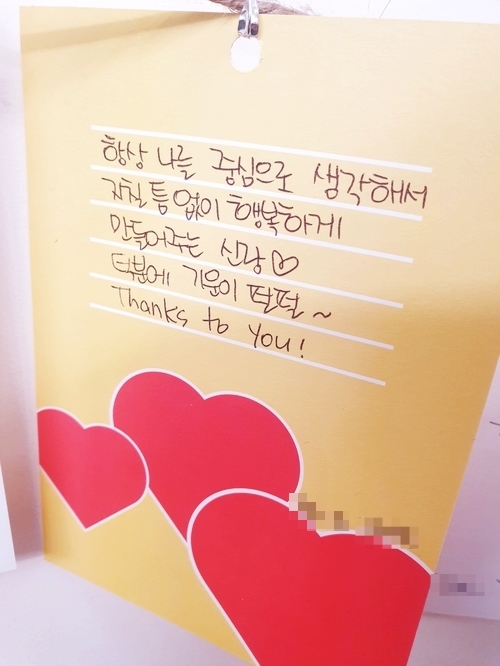 항상 나를 중심으로 생각해서
지칠 틈 없이 행복하게
만들어주는 신랑♡
덕분에 기운이 펄펄~
Thanks to you!